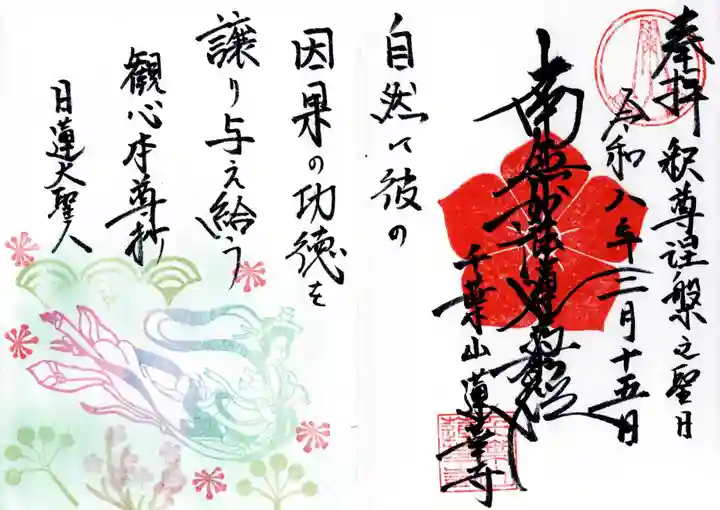 奉拝 釈尊涅槃之聖日
令和八年二月十五日
南無妙法蓮華経
千葉山 蓮華寺
自然に彼の
因果の功徳を
譲り与え給う
観心本尊抄
日蓮大聖人